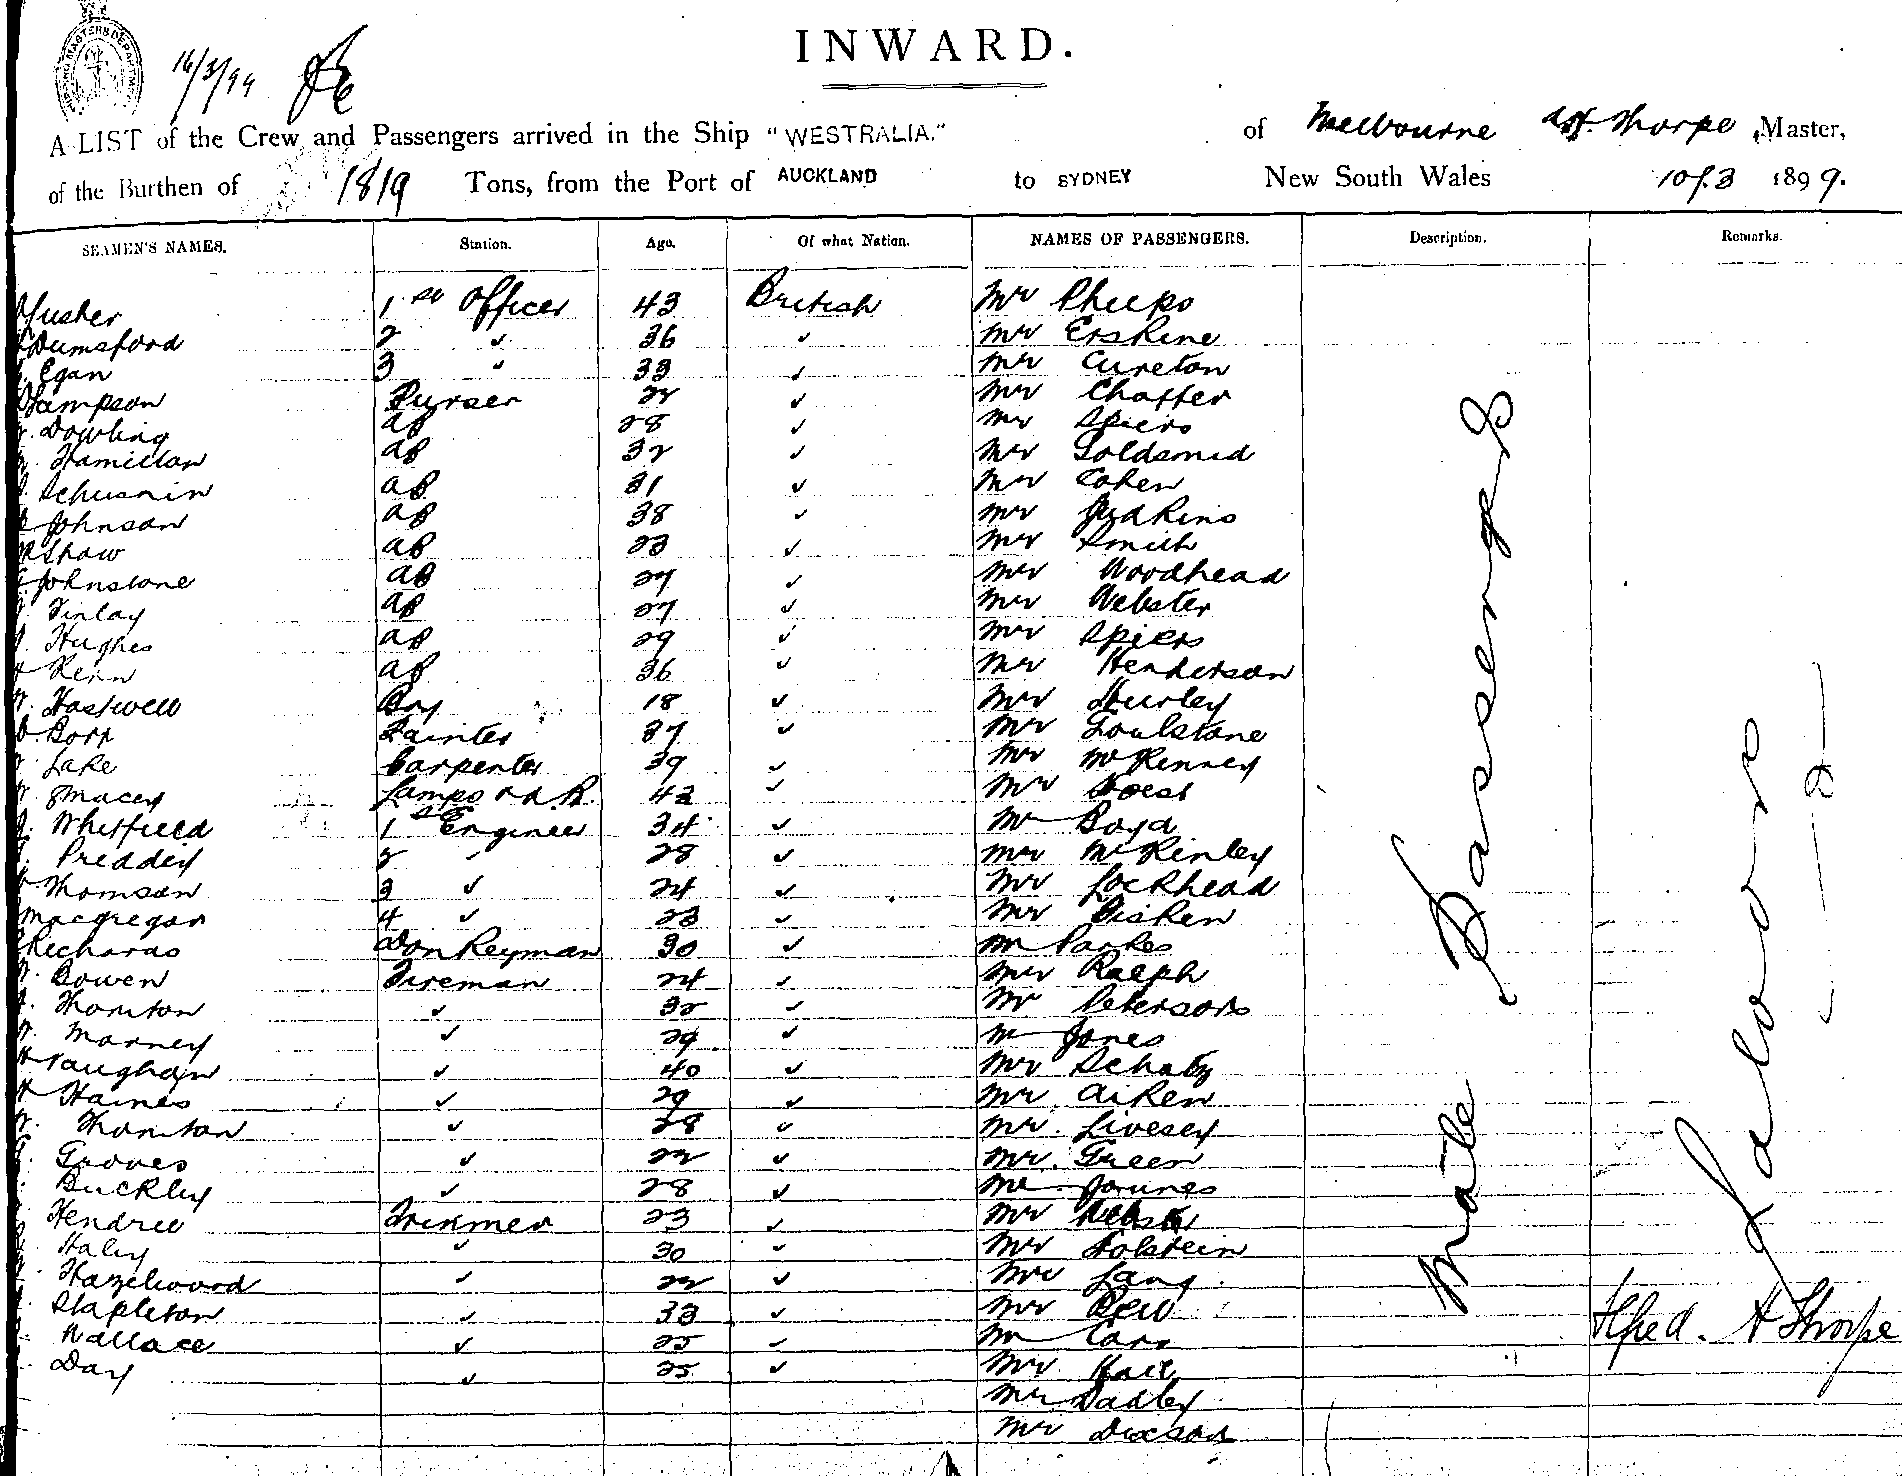 INWARD.
16/3/99
A LIST of the Crew and Passengers arrived in the Ship "WESTRALIA." of Melbourne A.H. Thorpe, Master,
of the Burthen of 1819 Tons, from the Port of AUCKLAND to SYDNEY New South Wales 10/3 1899.
SEAMEN'S NAMES. Station. Age. Of what Nation. NAMES OF PASSENGERS. Description. Remarks.
1st Officer 43 British Mr Phelps
Dumsford 2 ✓ 36 ✓ Mr Erskine
Egan 3 ✓ 33 ✓ Mr Cureton
Hampson Purser ✓ Mr Chaffer
Dowling AB 28 ✓ Mr Spiers
Hamilton AB 32 ✓ Mr Goldsmid
AB 31 ✓ Mr Cohen
Johnson AB 38 ✓ Mr Judkins
Shaw AB 23 ✓ Mr Smith
Johnstone AB 27 ✓ Mr Woodhead
Finlay AB 27 ✓ Mr Webster
Hughes AB 29 ✓ Mr Spiers
Renn AB 36 ✓ Mr Henderson
Hastwell Boy 18 ✓ Mr Hurley
Painter 37 ✓ Mr Goulstone
Lake Carpenter 39 ✓ Mr McKenney
Macey Lamps 43 ✓ Mr
Whitfield 1st Engineer 34 ✓ Mr Boyd
Preddey 2 ✓ 28 ✓ Mr McKinley
Thomson 3 ✓ 24 ✓ Mr Lockhead
Macgregor 4 ✓ 23 ✓ Mr
Richards Donkeyman 30 ✓ Mr Parkes
Bowen Fireman 24 ✓ Mr Ralph
Thornton ✓ 32 ✓ Mr Peterson
Marney ✓ 29 ✓ Mr Jones
Vaughan ✓ 40 ✓ Mr Schatz
Haines ✓ 29 ✓ Mr Aiken
Thornton ✓ 28 ✓ Mr. Livesey
Groves ✓ 22 ✓ Mr. Green
Buckley ✓ 28 ✓ Mr
Hendree Trimmer 23 ✓ Mr Webster
Haley ✓ 30 ✓ Mr Holstein
Hazelwood ✓ 22 ✓ Mr Lang
Stapleton ✓ 33 ✓ Mr
Wallace ✓ 25 ✓ Mr
Day ✓ 25 ✓ Mr Hall
Mr Dadley
Mr Dixson
Male Passengers
Saloons
Alfred. H Thorpe